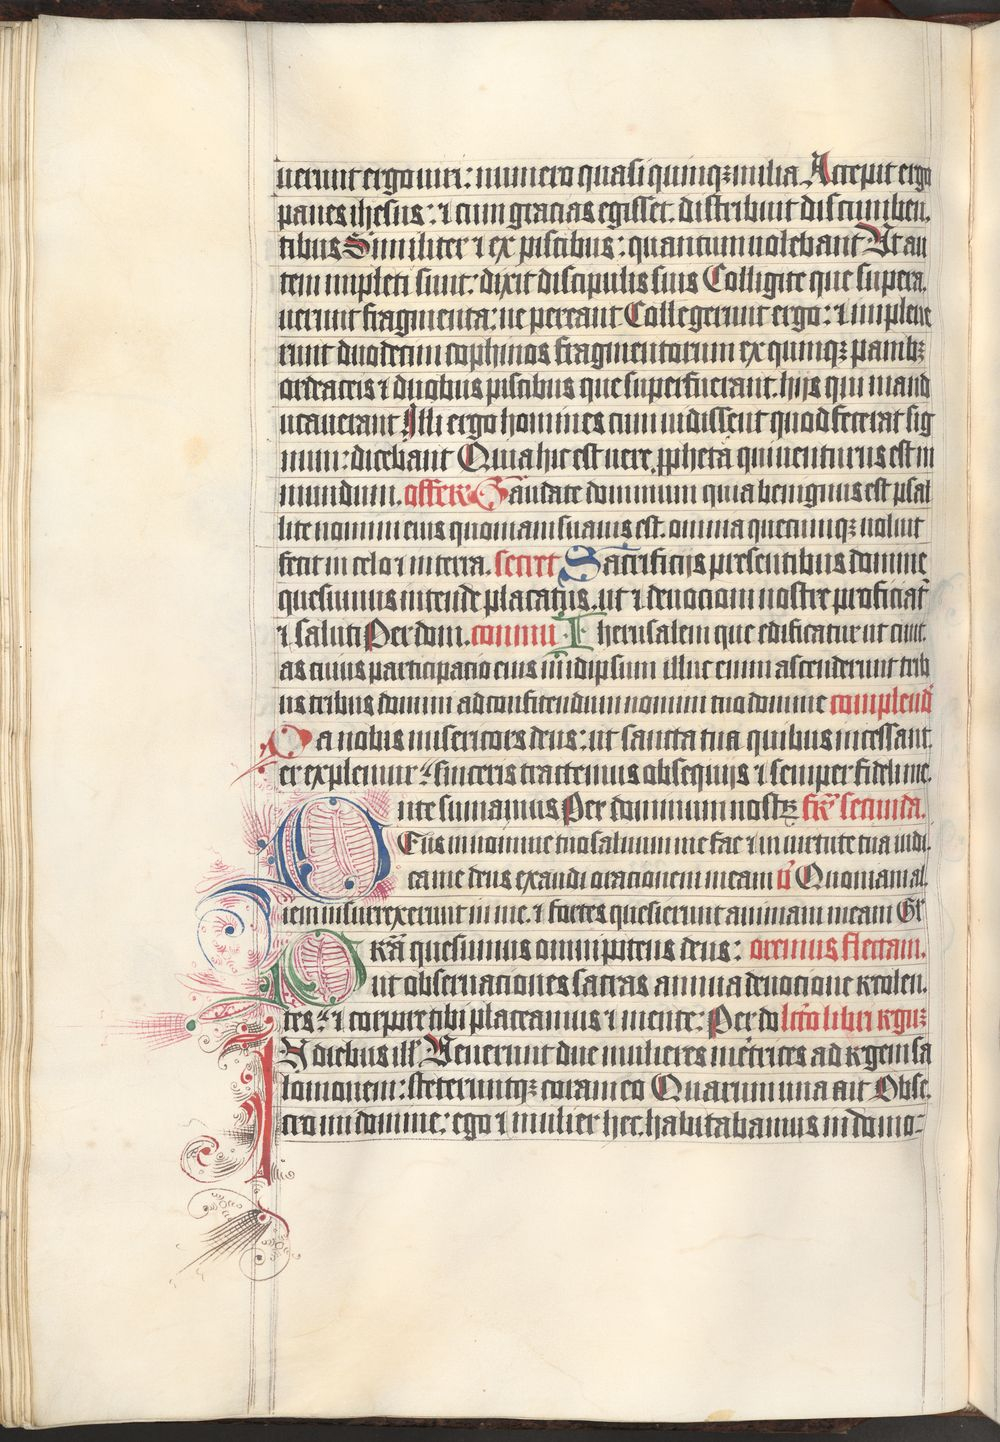 uerunt ergo uiri: numero quasi quinqꝫ milia. Accepit ergo
panes ihesus: ⁊ cum gracias egisset. distribuit discumben,
tibus Similiter ⁊ ex piscibus: quantum uolebant Ut au
tem impleti sunt: dixit discipulis suis Colligite que supera,
uerunt fragmenta: ne pereant Collegerunt ergo: ⁊ impleue
runt duodecim cophinos fragmentorum ex quinqꝫ panibꝫ
ordeaceis ⁊ duobus piscibus que superfuerant. hijs qui mand
ucauerant Illi ergo homines cum uidissent quod fecerat sig
num: dicebant Quia hic est uere ꝓpheta qui uenturus est in
mundum. offerť Laudate dominum quia benignus est psal
lite nomini eius quoniam suauis est. omnia quecunqꝫ uoluit
fecit in celo ⁊ in terra. secret Sacrificijs presentibus domine
quesumus intende placatus. ut ⁊ deuocioni nostre proficiat
⁊ saluti Per dom. commu Iherusalem que edificatur ut ciuit.
as cuius participacio eius in idipsum illuc enim ascenderunt trib
us tribus domini ad confitendum nomini tuo domine complend
Da nobis misericors deus: ut sancta tua quibus incessant.
er explemur: sinceris tractemus obsequijs ⁊ semper fideli me.
nte sumamus Per dominum nostꝝ fer̃ secunda.
Deus in nomine tuo saluum me fac ⁊ in uirtute tua iudi.
ca me deus exaudi oracionem meam v̉ Quoniam al.
ieni insurrexerunt in me. ⁊ fortes quesierunt animam meam Gł
Grã quesumus omnipotens deus: oremus flectam.
ut obseruaciones sacras annua deuocione recolen.
tes: ⁊ corpore tibi placeamus ⁊ mente: Per do lcõ libri regũ
In diebus ill̃ Uenerunt due mulieres mẽtrices ad regem sa
lomonem: steteruntqꝫ coram eo Quarum una ait Obse.
cro mi domine: ego ⁊ mulier hec. habitabamus in domo-